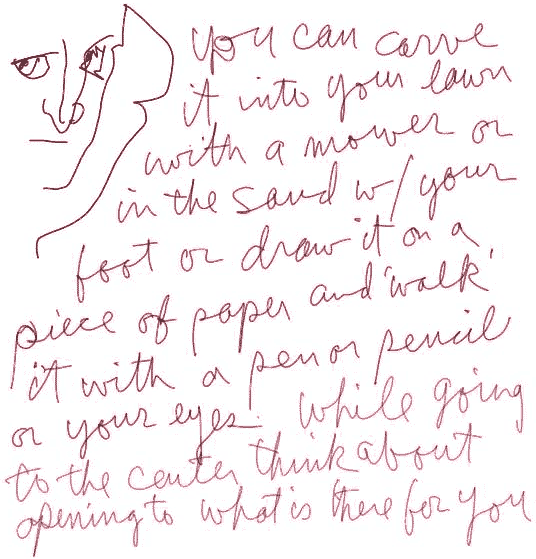 you can carve
it into your lawn
with a mower or
in the sand w/ your
foot or draw it on a
piece of paper and 'walk'
it with a pen or pencil
or your eyes. While going
to the center, think about
opening to what is there for you